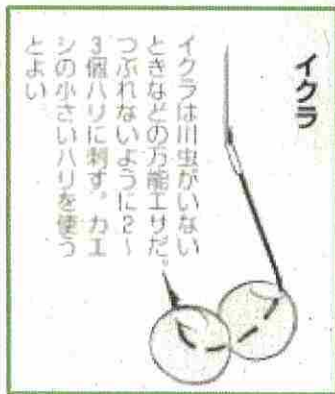 イクラ
イクラは川虫がいない
ときなどの万能エサだ。
つぶれないように2〜
3個ハリに刺す。カエ
シの小さいハリを使う
とよい